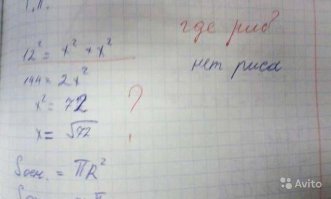 12² = x² + x²
144 = 2x²
x² = 72
x = √72
?
Sосн. = πR²
где рис?
нет риса
Avito